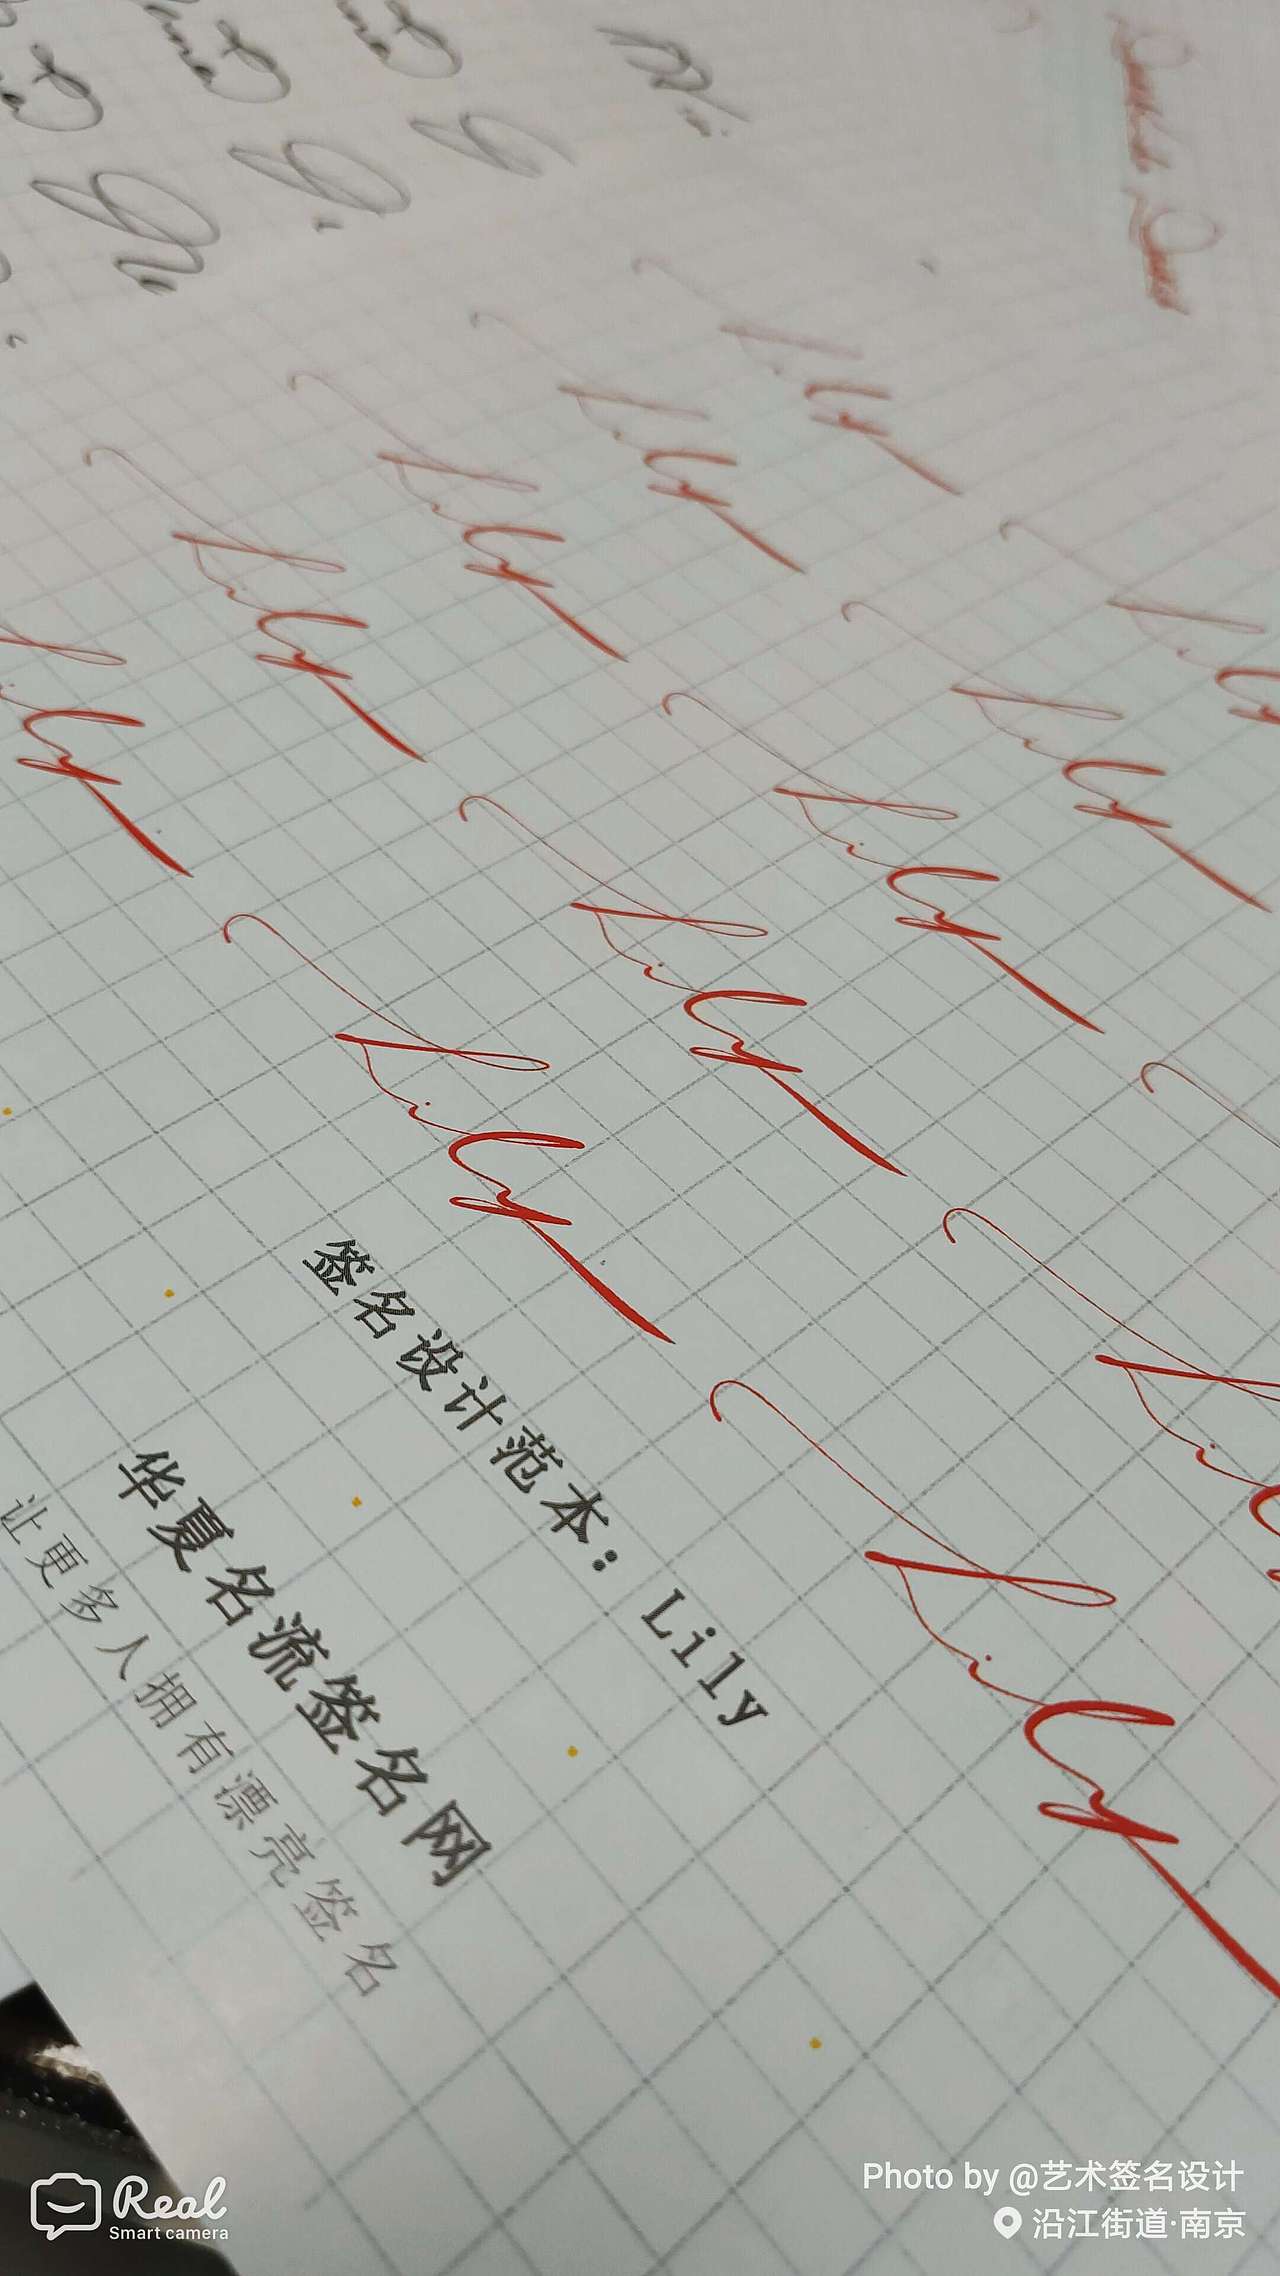 Lily
Lily
Lily
Lily
Lily
Lily
Lily
Lily
Lily
Lily
签名设计范本：Lily
华夏名流签名网
让更多人拥有漂亮签名
Real
Smart camera
Photo by @艺术签名设计
沿江街道·南京